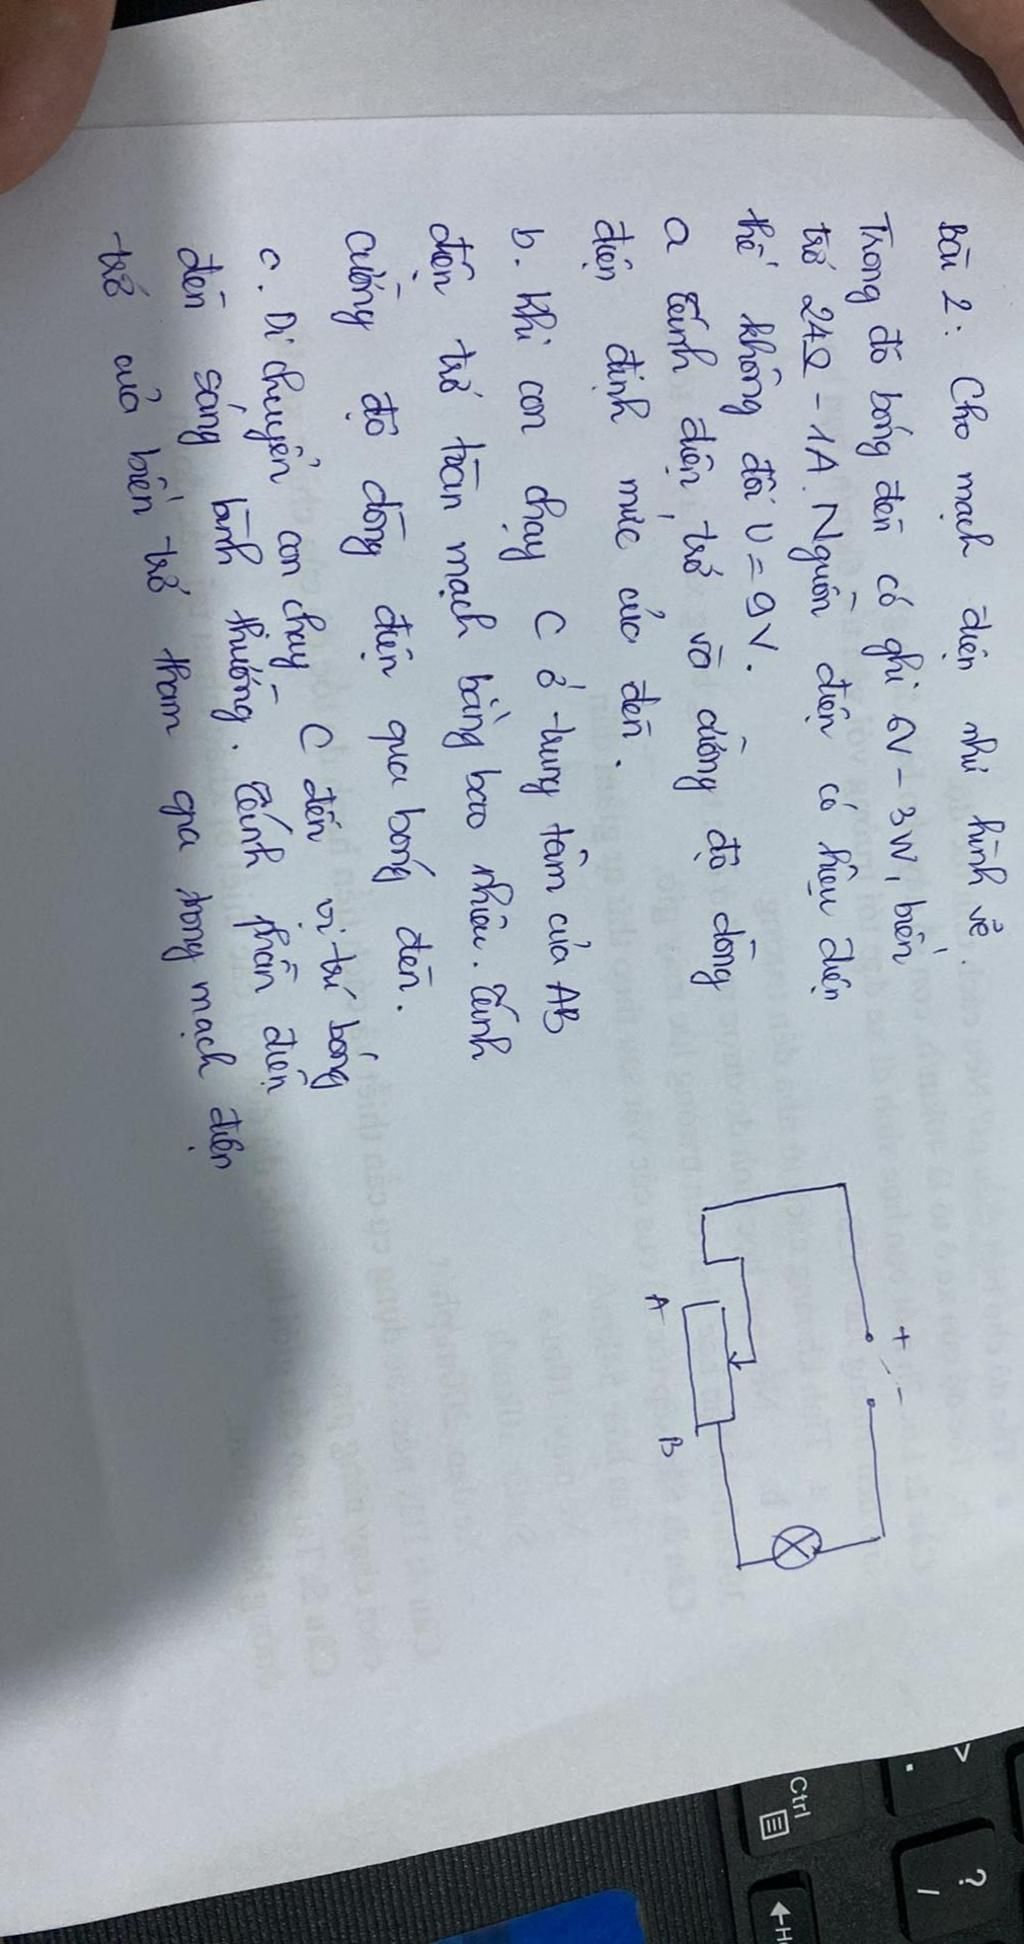 Bài 2: Cho mạch điện như hình vẽ.
Trong đó bóng đèn có ghi 6V - 3W, biến
trở 24Ω - 1A. Nguồn điện có hiệu điện
thế không đổi U = 9V.
a Tính điện trở và cường độ dòng
điện định mức của đèn.
b. Khi con chạy C ở trung tâm của AB
điện trở toàn mạch bằng bao nhiêu. Tính
cường độ dòng điện qua bóng đèn.
c. Di chuyển con chạy C đến vị trí bóng
đèn sáng bình thường. Tính phần điện
trở của biến trở tham gia trong mạch điện
+ -
A B
Ctrl
>
.
?
/